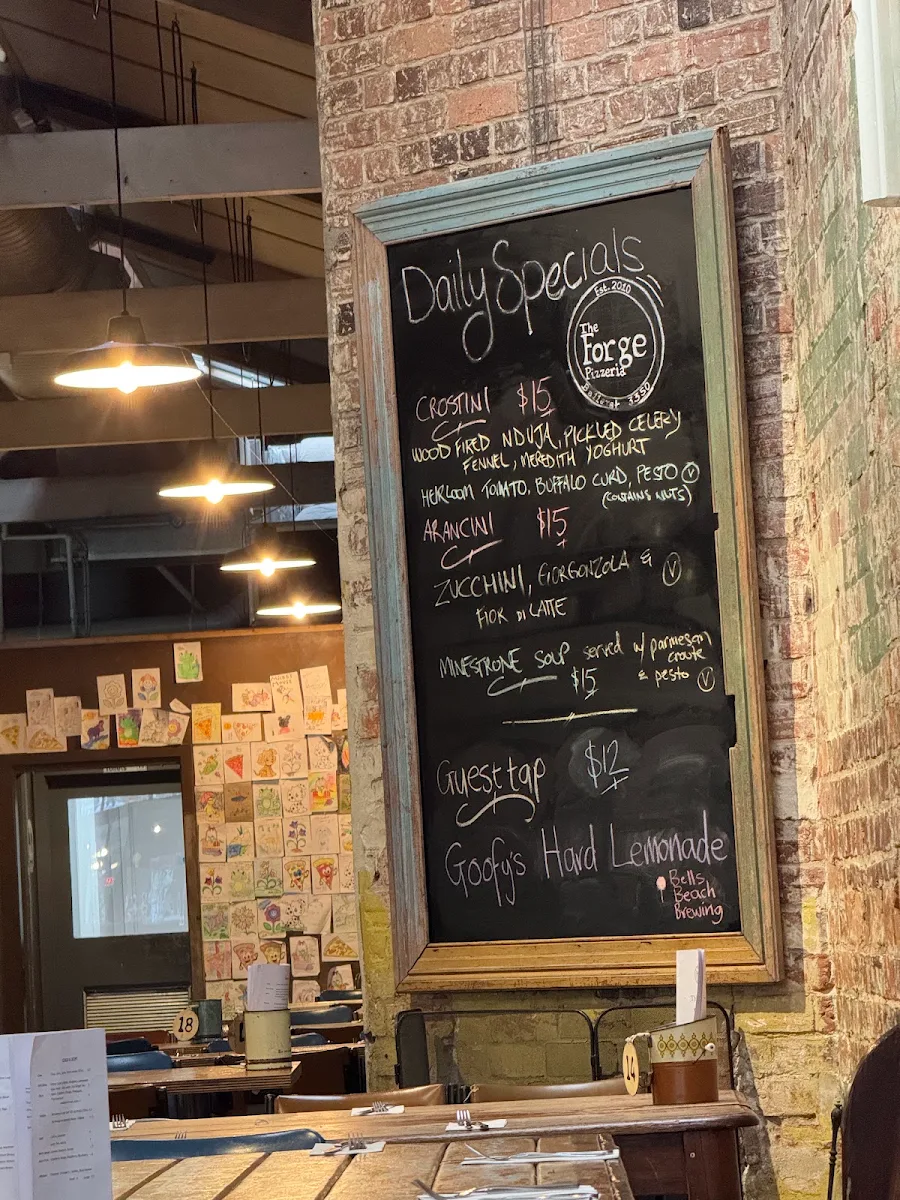 Daily Specials
Est. 2010
The
Forge
Pizzeria
Ballarat 3350
CROSTINI $15
WOOD FIRED NDUJA, PICKLED CELERY
FENNEL, MEREDITH YOGHURT
HEIRLOOM TOMATO, BUFFALO CURD, PESTO V
(CONTAINS NUTS)
ARANCINI $15
ZUCCHINI, GORGONZOLA & V
FIOR DI LATTE
MINESTRONE SOUP served w/ parmesan
croute
$15 & pesto V
Guest tap $12
Goofy's Hard Lemonade
Bells
Beach
Brewing
18
14